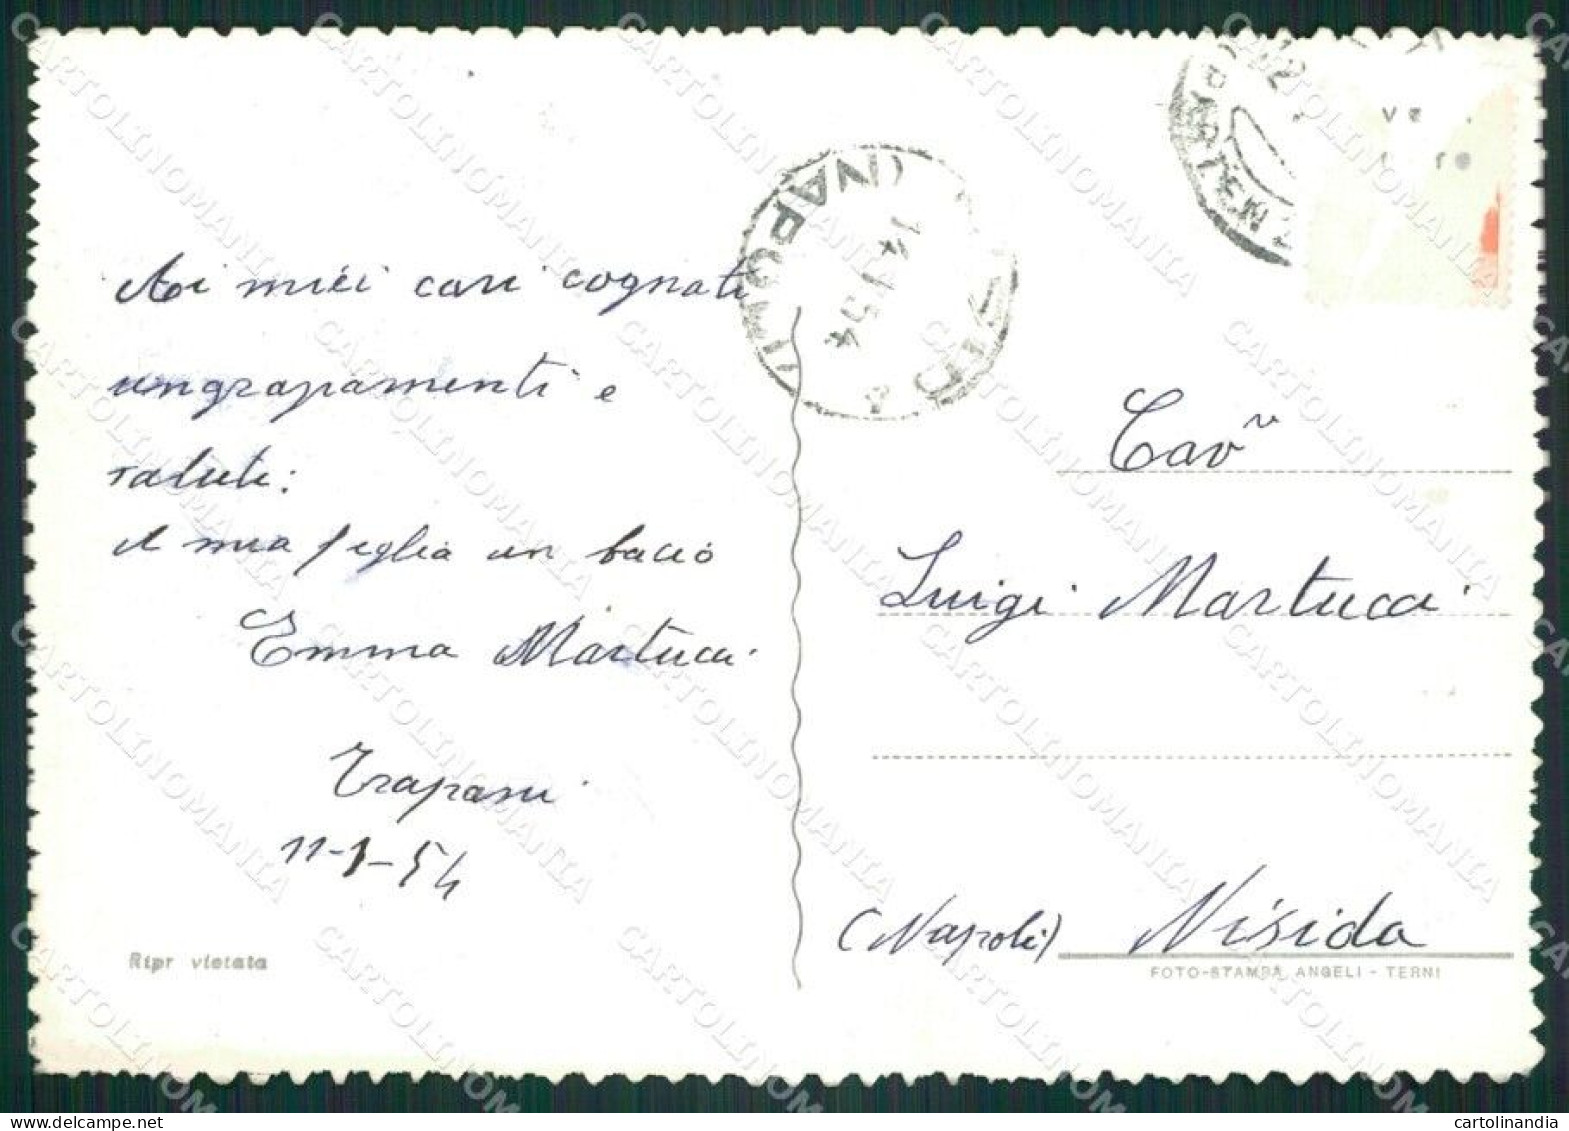 Ai miei cari cognati
ringraziamenti e
saluti:
A mia figlia un bacio
Emma Martucci
Trapani
11-1-54
Ripr vietata
(NAPOLI)
14 1 54
Cav
Luigi Martucci
(Napoli) Nisida
FOTO-STAMPA ANGELI - TERNI
CARTOLINOMANIA
www.delcampe.net
cartolinandia